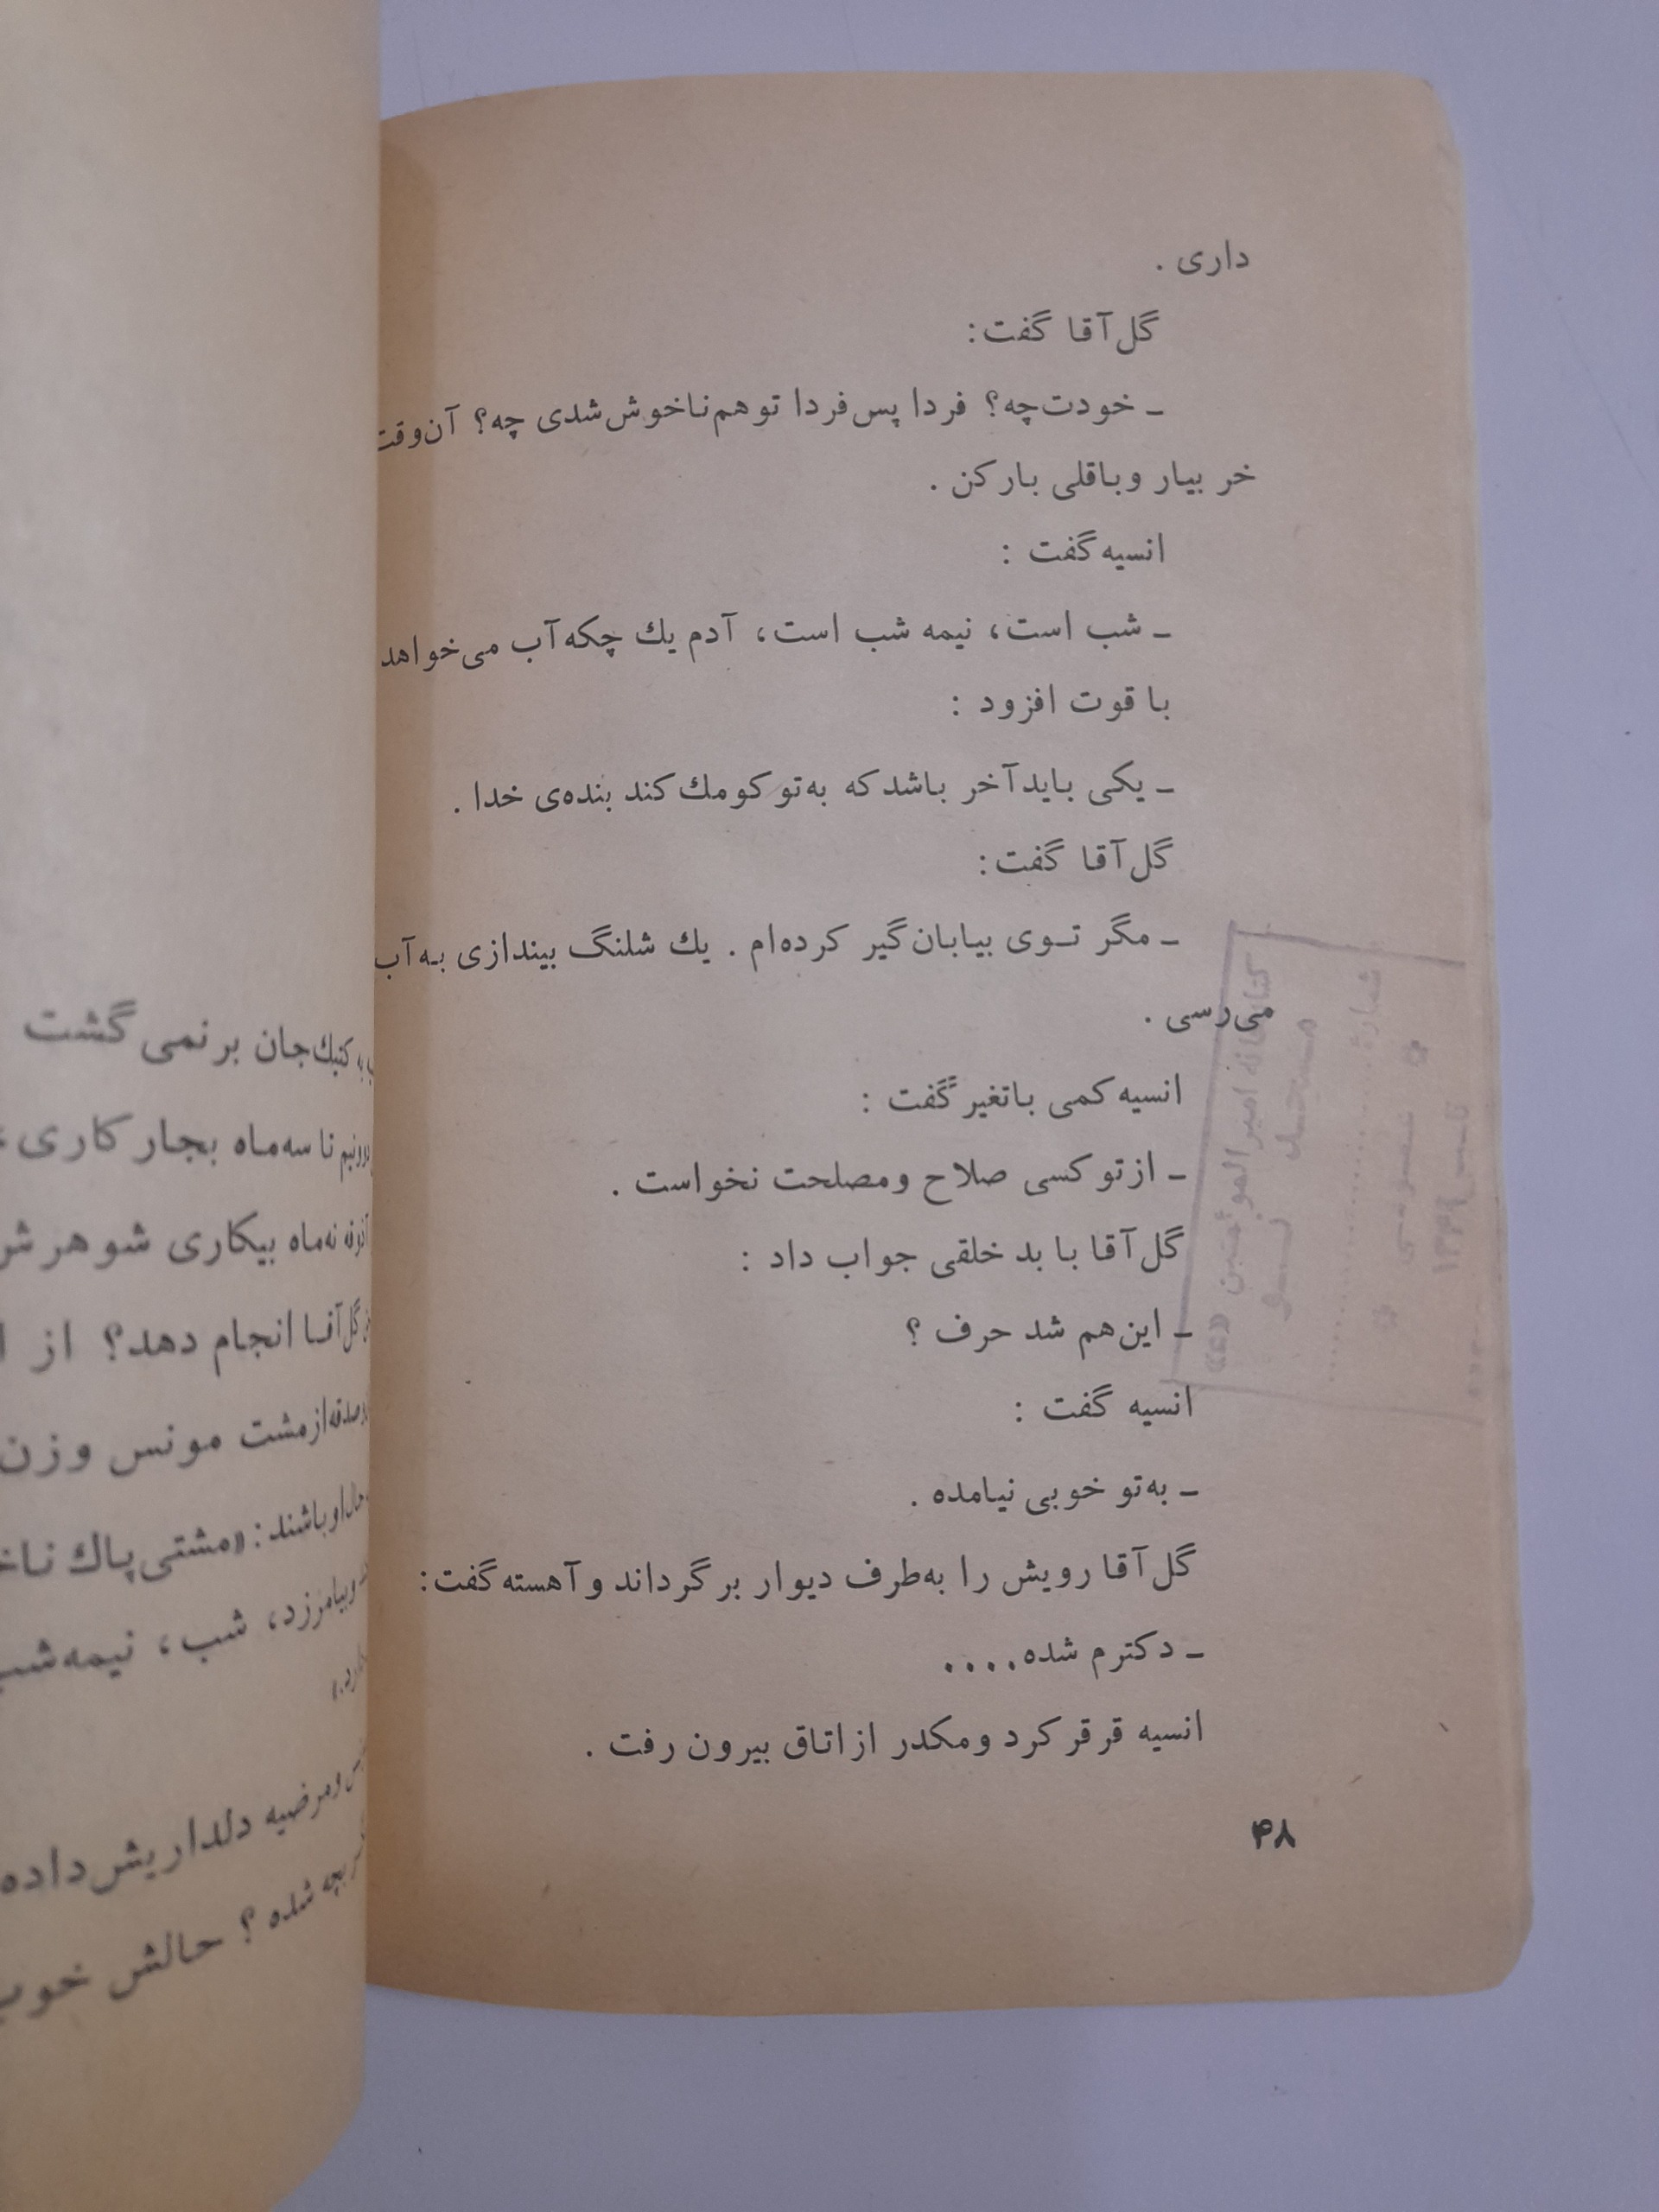 داری .
گل‌آقا گفت:
ـ خودت‌چه؟ فردا پس‌فردا تو هم‌ناخوش‌شدی چه؟ آن‌وقت
خر بیار و باقلی بار کن .
انسیه گفت :
ـ شب است، نیمه شب است، آدم یك چکه آب می‌خواهد
با قوت افزود :
ـ یکی باید آخر باشد که به‌تو کومك کند بنده‌ی خدا .
گل‌آقا گفت:
ـ مگر تـوی بیابان گیر کرده‌ام . یك شلنگ بیندازی بـه آب
می‌رسی .
انسیه کمی باتغیر گفت :
ـ از تو کسی صلاح و مصلحت نخواست .
گل‌آقا با بد خلقی جواب داد :
ـ این هم شد حرف ؟
انسیه گفت :
ـ به‌تو خوبی نیامده .
گل‌آقا رویش را به‌طرف دیوار برگرداند و آهسته گفت:
ـ دکترم شده....
انسیه قرقر کرد و مکدر از اتاق بیرون رفت .
۴۸
کتابخانه امیرالموئمنین «ع»
مسجد
شماره
تاسیس ۱۳۴۹
کنیك‌جان بر نمی‌گشت
تا سه‌ماه بجار کاری
نه‌ماه بیکاری شوهرش
گل‌آقا انجام دهد؟ از
از مشت مونس و زن
او باشند: «مشتی پاك
بیامرزد، شب، نیمه‌شب
و مرضیه دلداریش داده
بچه شده ؟ حالش خوب